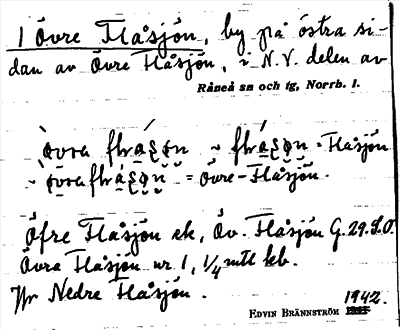 1 Övre Flåsjön, by på östra si-
dan av Övre Flåsjön, i N.V. delen av
Råneå sn och tg, Norrb. l.
= Flåsjön
= Övre-Flåsjön.
Öfre Flåsjön ek, Öv. Flåsjön G.29.S.O.
Övra Flåsjön nr 1, 1/4 mtl kb.
Jfr Nedre Flåsjön.
EDVIN BRÄNNSTRÖM 1942.